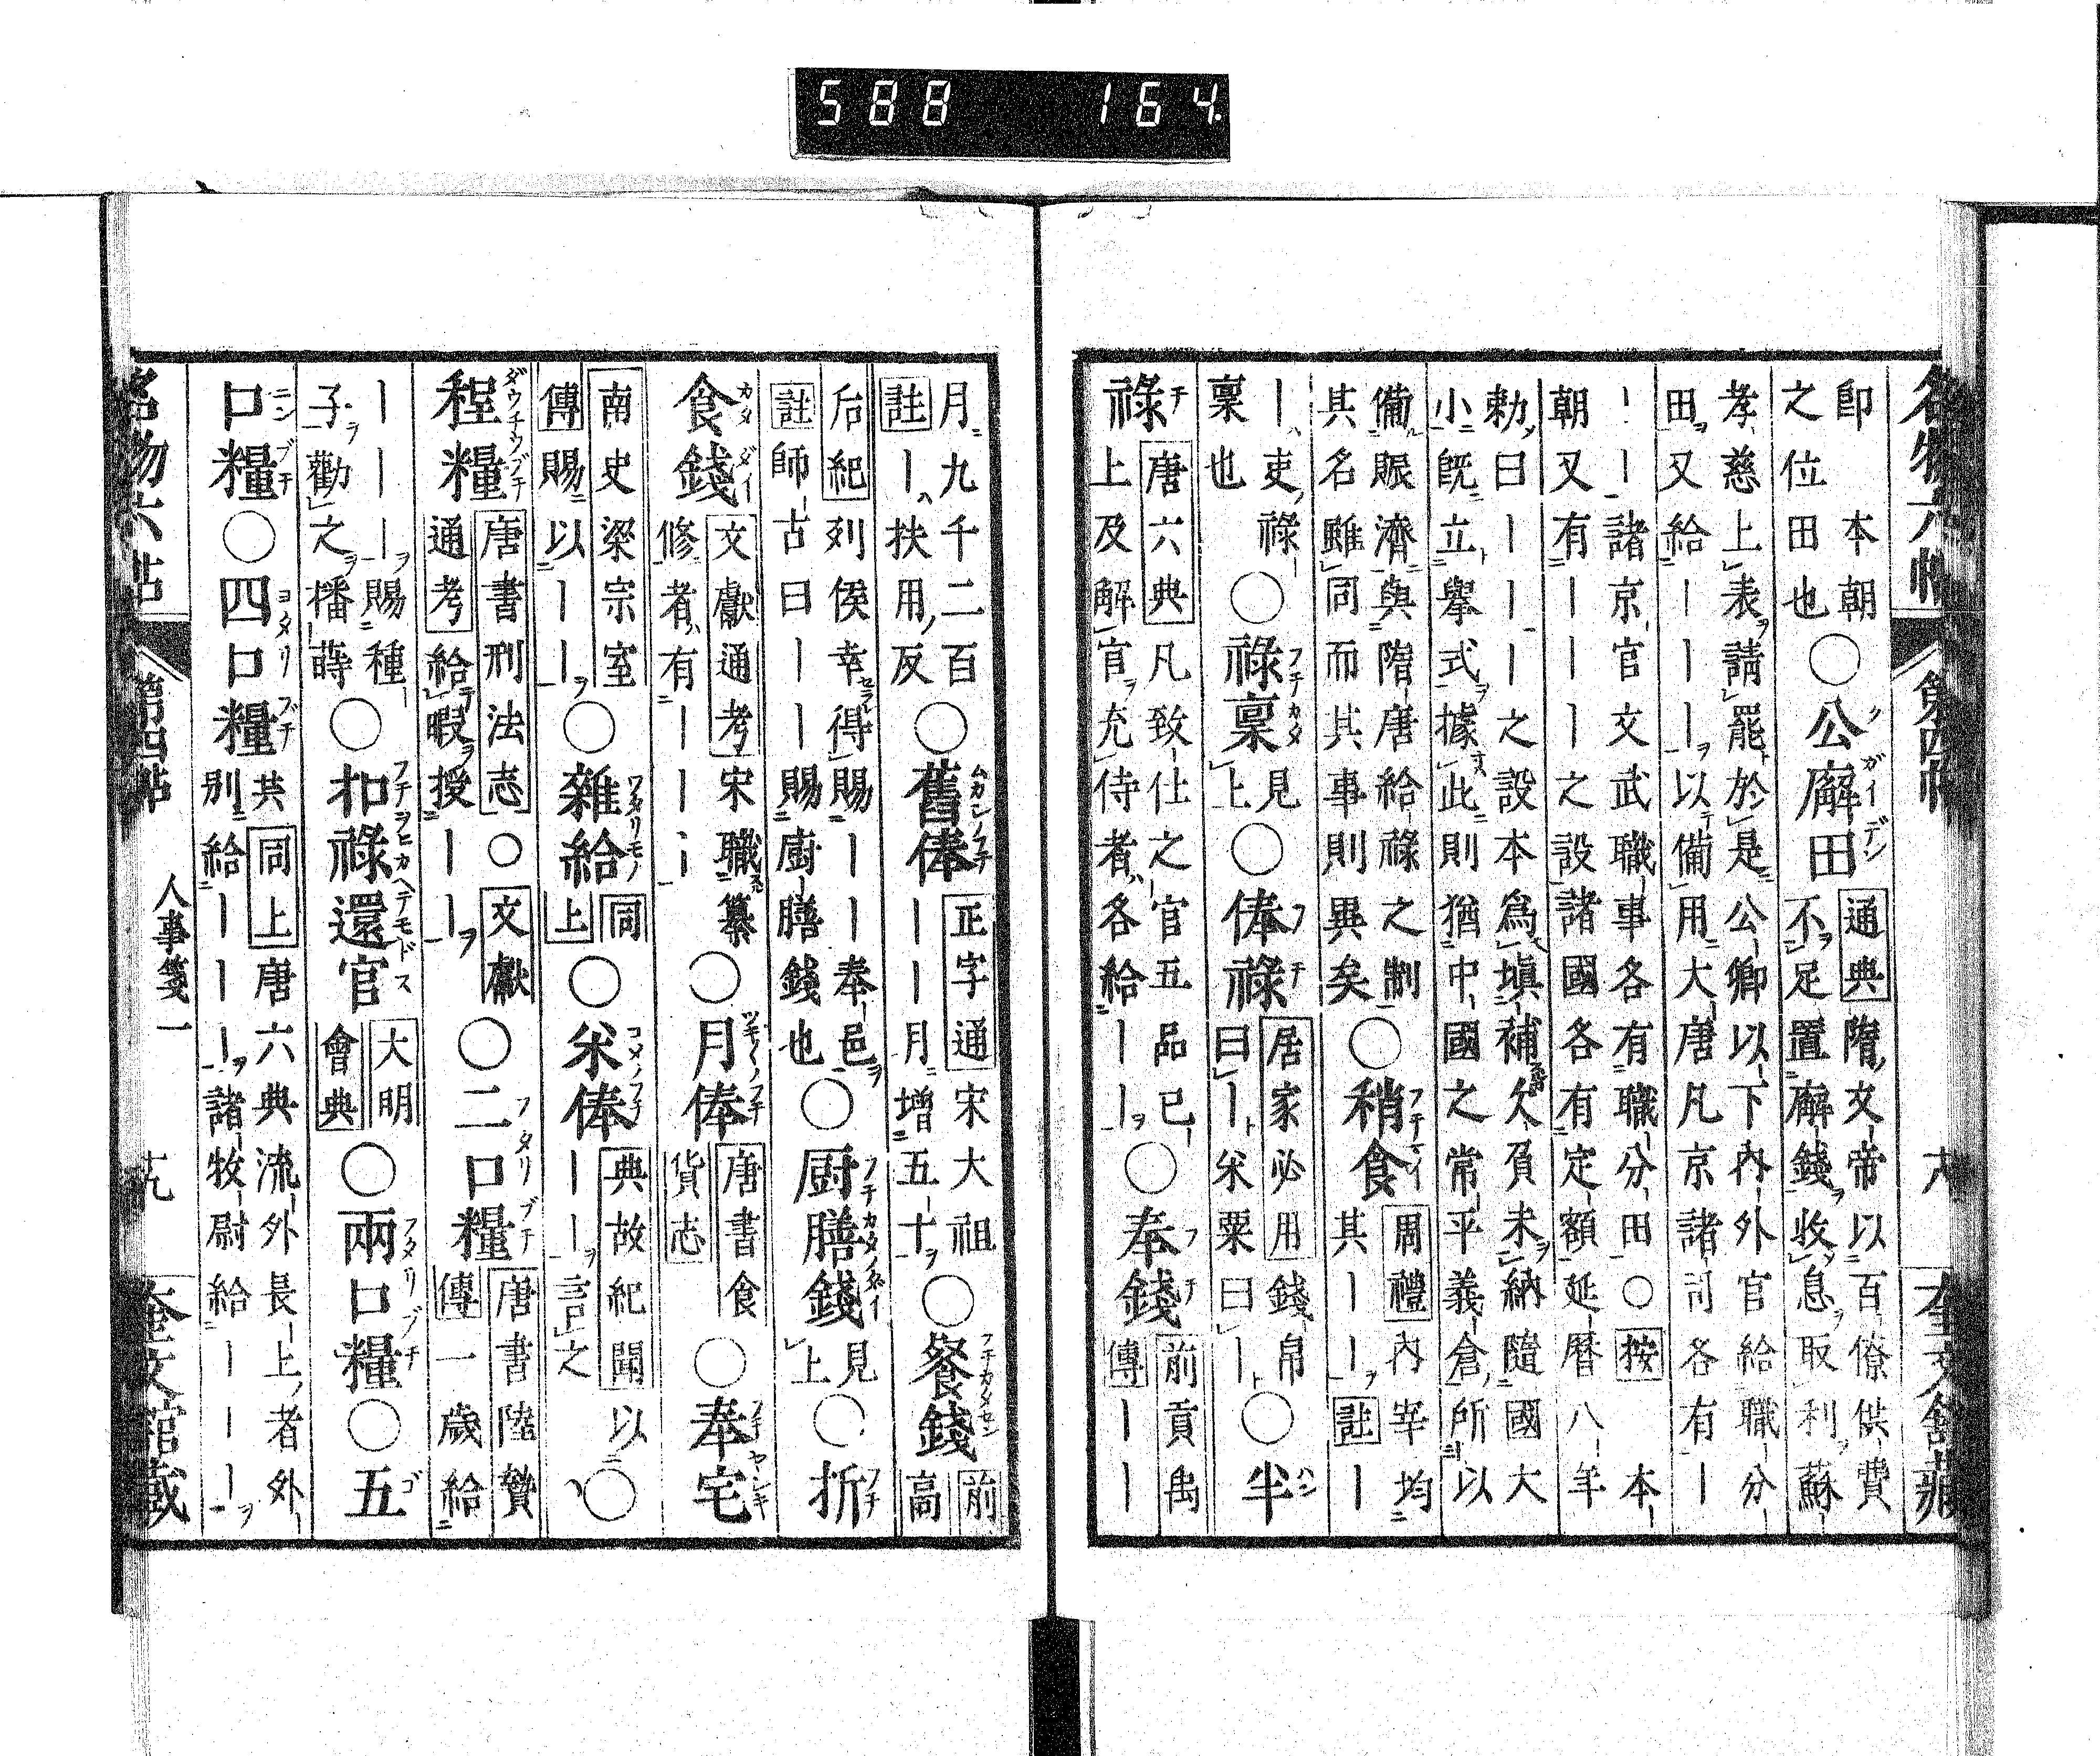 588 164.
名物六帖 第四帖 六 奎文館藏
卽 本朝
之位田也○公廨田 通典 隋文帝以百僚供費
不足置廨錢收息取利蘇
孝慈上表請罷於是公卿以下內外官給職分
田又給ーーー以備用大唐凡京諸司各有ー
ーー諸京官文武職事各有職分田○按 本
朝又有ーーー之設諸國各有定額延曆八年
勅曰ーーー之設本爲塡補欠負未納隨國大
小旣立擧式據此則猶中國之常平義倉所以
備賑濟與隋唐給祿之制○稍食 周禮 內宰均
其名雖同而其事則異矣 其ーー 註 ー
ー吏祿○祿稟 見上○俸祿 居家必用 錢帛○半
稟也 曰ー米粟曰ー
祿 唐六典 凡致仕之官五品已○奉錢 前貢禹
上及解官充侍者各給ーー 傳 ーー
月九千二百○舊俸 正字通 宋大祖○餐錢 前
註 ー扶用反 ーー月增五十 高
后紀 列侯幸得賜ーー奉邑○厨膳錢 見上○折
註 師古曰ーー賜廚膳錢也
食錢 文獻通考 宋職纂○月俸 唐書食○奉宅
修者有ーーー 貨志
南史梁宗室○雜給 同上○米俸 典故紀聞 以○
傳 賜以ーー ーー言之
程糧 唐書刑法志○文獻○二口糧 唐書陸贄
通考 給暇授ーー 傳 一歲給
ーーー賜種○扣祿還官 大明○兩口糧○五
子勸之播蒔 會典
口糧○四口糧 共 同上 唐六典流外長上者外
別給ーーー諸牧尉給ーーー
名物六帖 第四帖 人事箋一 奎文館藏